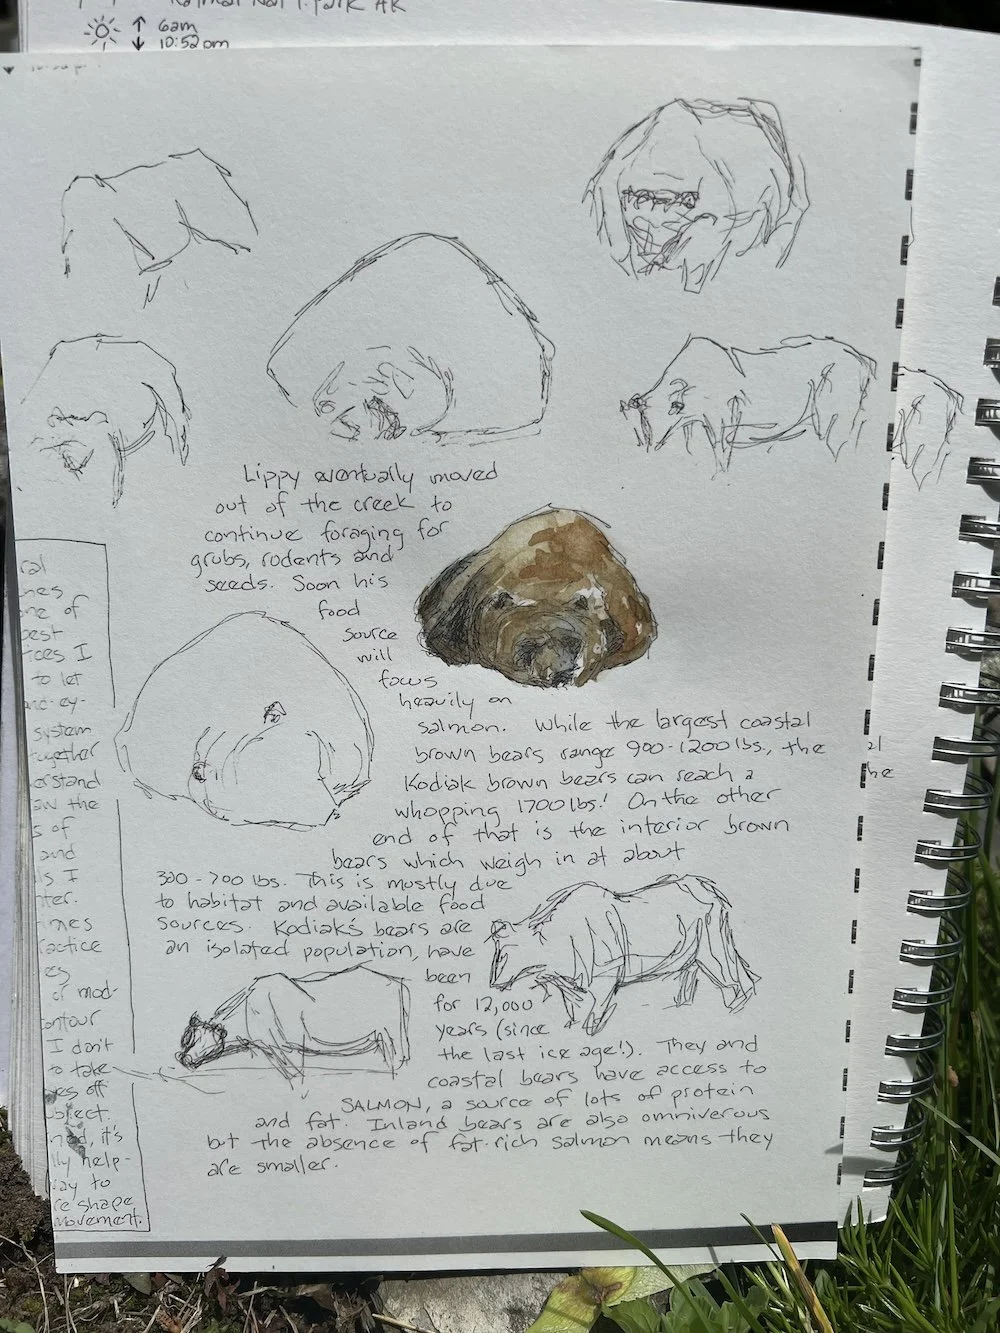 Katmai Nat'l. Park AK
6am
10:52pm
Lippy eventually moved
out of the creek to
continue foraging for
grubs, rodents and
seeds. Soon his
food
source
will
focus
heavily on
salmon. While the largest coastal
brown bears range 900-1200 lbs., the
Kodiak brown bears can reach a
whopping 1700 lbs.! On the other
end of that is the interior brown
bears which weigh in at about
300-700 lbs. This is mostly due
to habitat and available food
sources. Kodiak's bears are
an isolated population, have
been
for 12,000
years (since
the last ice age!). They and
coastal bears have access to
SALMON, a source of lots of protein
and fat. Inland bears are also omniverous
but the absence of fat-rich salmon means they
are smaller.
al
he
ral
nes
ne of
best
ices I
to let
and-ey-
system
together
erstand
aw the
s of
and
ls I
nter.
mes
ractice
es
or mod-
ontour
I don't
to take
yes off
ubject.
it's
lly help-
way to
re shape
movement.